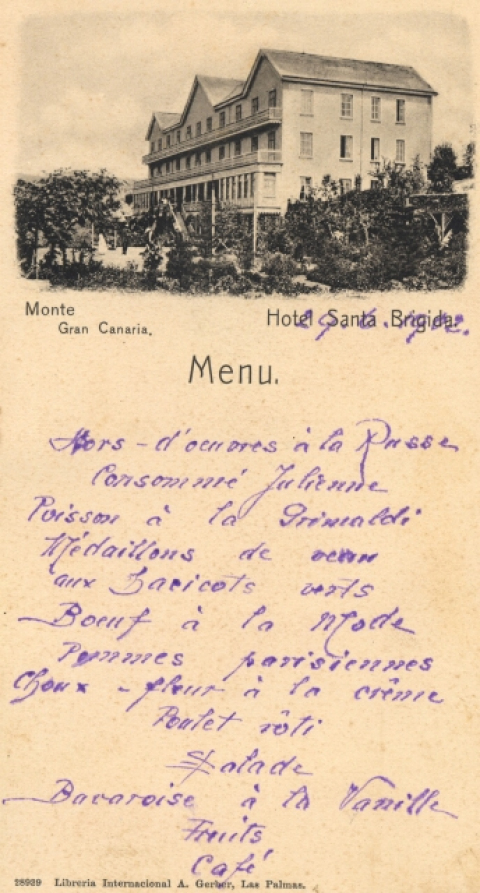 Monte
Gran Canaria.
Hotel Santa Brigida.
Menu.
Hors-d'oeuvres à la Russe
Consommé Julienne
Poisson à la Grimaldi
Médaillons de veau
aux Haricots verts
Boeuf à la Mode
Pommes parisiennes
Choux-fleur à la crème
Poulet rôti
Salade
Bavaroise à la Vanille
Fruits
Café
28939 Libreria Internacional A. Gerber, Las Palmas.